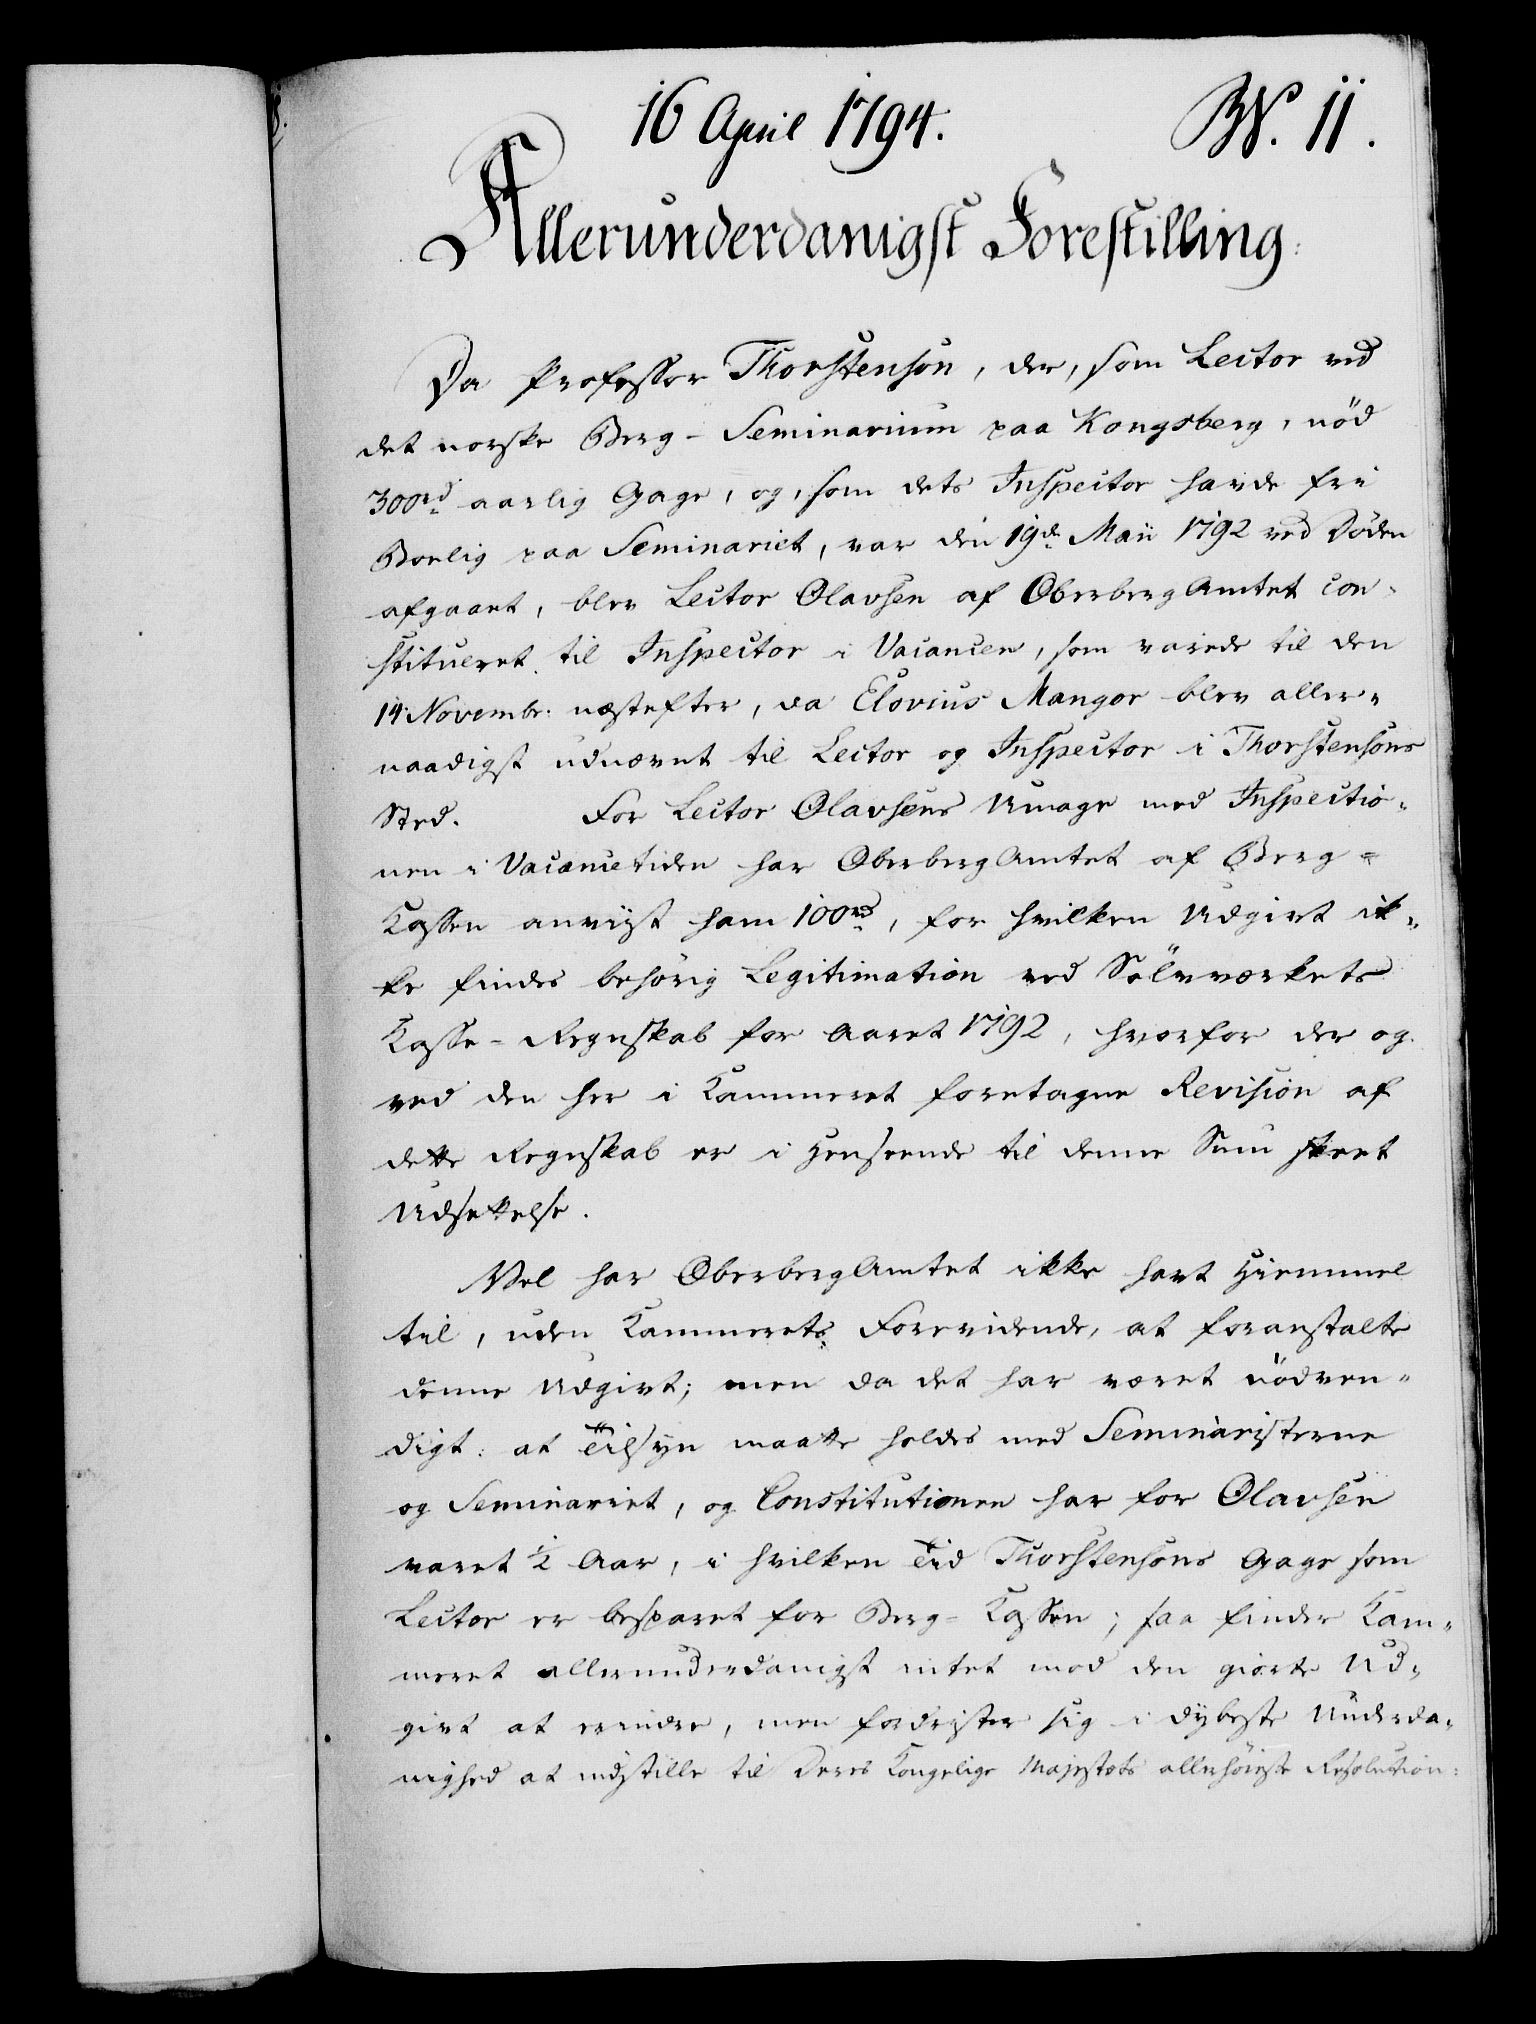 16 April 1794. No. 11.
Allerunderdanigst Forestilling:
Da Professor Thorstensøn, der, som Lector ved
det norske Berg-Seminarium paa Kongsberg, nød
300rd aarlig Gage, og, som dets Inspector havde fri
Boelig paa Seminariet, var den 19de Maii 1792 ved Døden
afgaaet, blev Lector Olavsen af OberbergAmtet con-
stitueret til Inspector i Vacancen, som varede til den
14 Novembr: næstefter, da Elovius Mangor blev aller-
naadigst udnævnt til Lector og Inspector i Thorstensøns
Sted. For Lector Olavsens Umage med Inspectio-
nen i Vacancetiden har OberbergAmtet af Berg-
Kassen anviist ham 100rd, for hvilken Udgivt ik-
ke findes behörig Legitimation ved Sölvværkets
Kasse-Regnskab for Aaret 1792, hvorfor der og
ved den her i Kammeret foretagne Revision af
dette Regnskab er i Henseende til denne Sum skeet
Udsettelse.
Vel har OberbergAmtet ikke havt Hiemmel
til, uden Kammerets Forevidende, at foranstalte
denne Udgivt; men da det har været nödven-
digt: at Tilsyn maatte holdes med Seminaristerne
og Seminariet, og Constitutionen har for Olavsen
varet 1/2 Aar, i hvilken Tid Thorstensøns Gage som
Lector er besparet for Berg-Kassen; saa finder Kam-
meret allerunderdanigst intet mod den giorte Ud-
givt at erindre, men fordrister sig i dybeste Underda-
nighed at indstille til Deres Kongelige Majestæts allerhöieste Resolution: